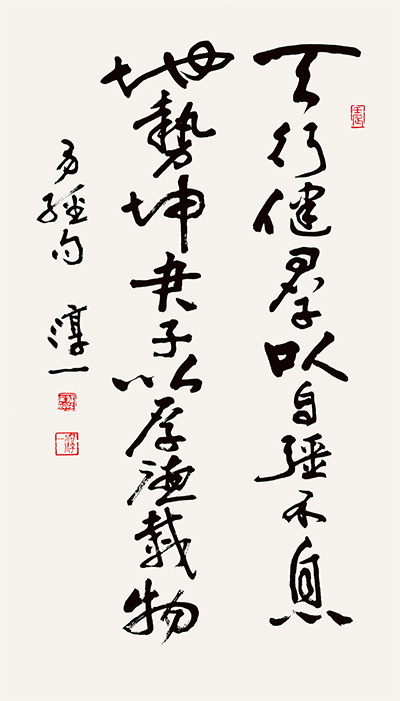 天行健君子以自彊不息
地勢坤君子以厚德載物
易經句 淳一